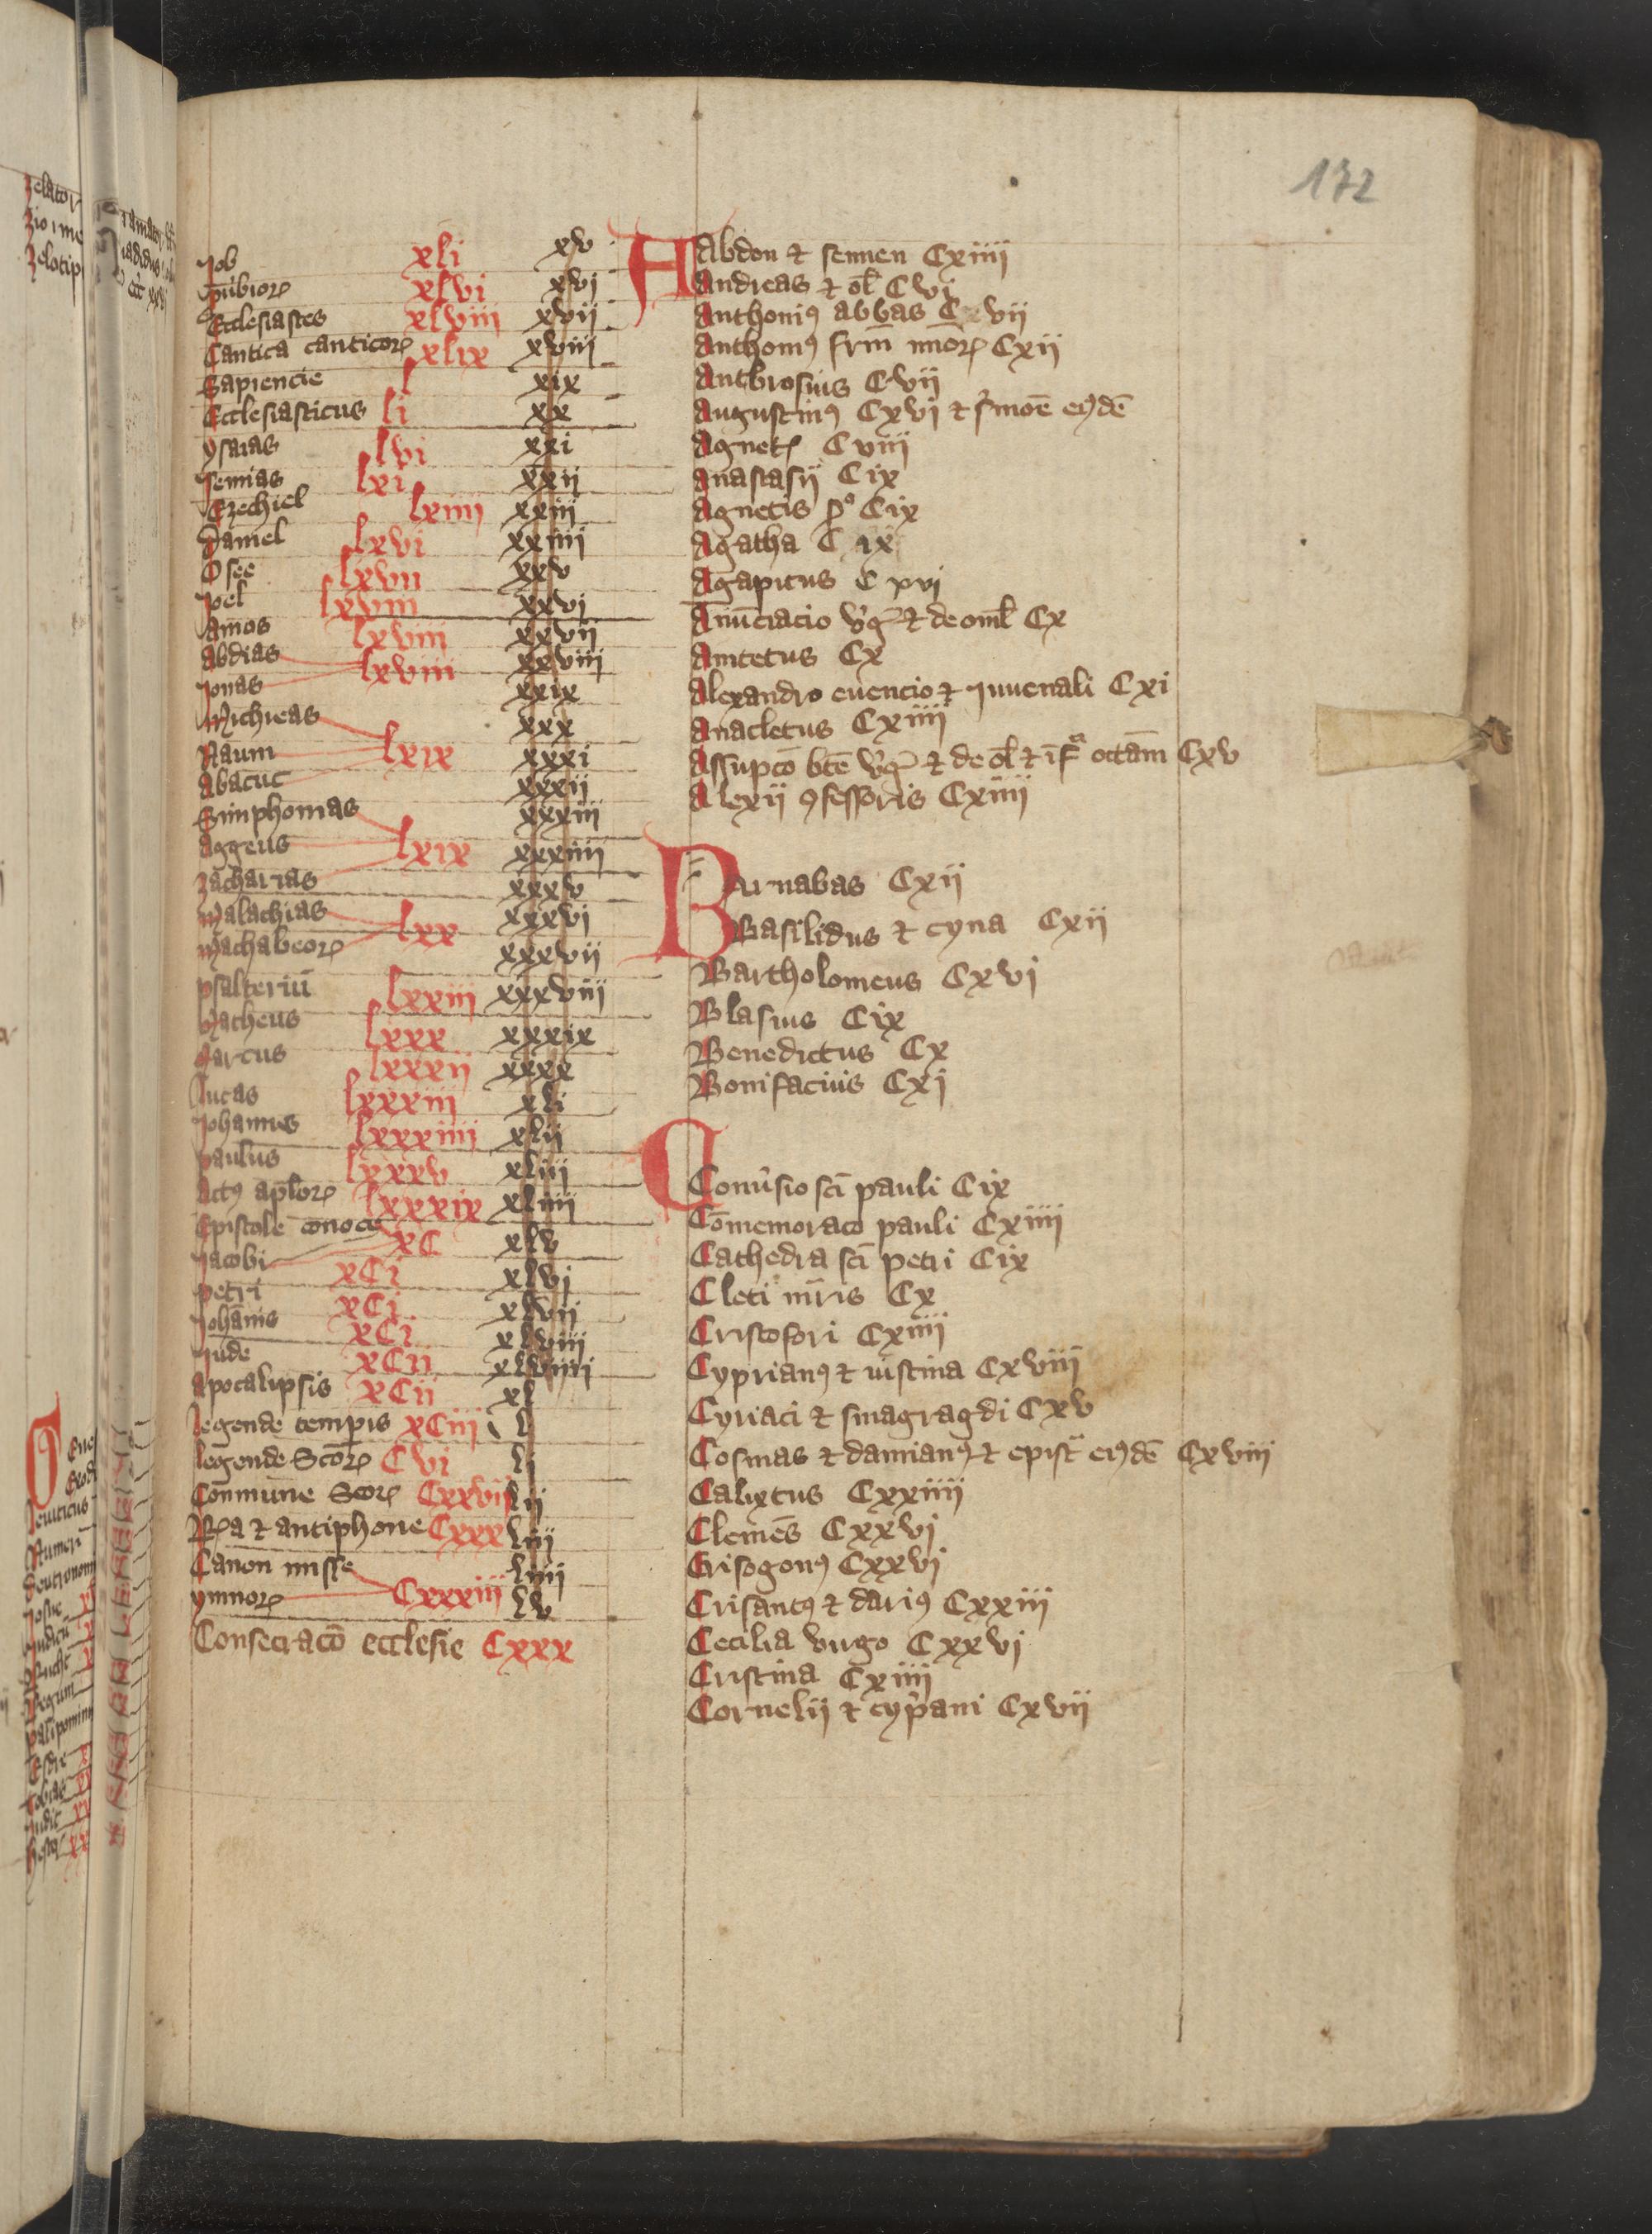 172
Job xli xv
Ecclesiastes xlviii xvii
Cantica canticoꝝ xlix xviii
Sapiencie l xix
Ecclesiasticus li xx
ysaias lvi xxi
Jemias lxi xxii
Ezechiel lxiiii xxiii
Daniel lxvi xxiiii
Osee lxvii xxv
Joel lxviii xxvi
Amos lxviii xxvii
Abdias lxviii xxviii
Jonas xxix
Michieas xxx
Naum lxix xxxi
Abacuc xxxii
Simphonias xxxiii
Aggeus lxix xxxiiii
zacharias xxxv
Malachias lxx xxxvi
Machabeoꝝ xxxvii
psalteriū lxxiii xxxviii
Matheus lxxx xxxix
Marcus lxxxii xxxx
Lucas lxxxiii xli
Johannes lxxxiiii xlii
paulus lxxxv xliii
Actꝰ apl̄oꝝ lxxxix xliiii
Epistole canoce
Jacobi xC xlv
petri xCi xlvi
Joh̄anis xCi xlvii
Jude xCi xlviii
Apocalipsis xCii xl
legende tempis xCiii l
legende Scōꝝ Cvi li
Commune Scoꝝ Cxxvii lii
Rᷓa et antiphone Cxxx liii
Canon misse liiii
ymnoꝝ Cxxxiii lv
Consecracō ecclesie Cxxx
Abdon et sennen Cxiiii
Andreas et ol̄ Cvi
Anthoniꝰ abbas Cvii
Anthoniꝰ frm̄ mnoꝝ Cxii
Ambrosius Cvii
Augustinꝰ Cxvi et s̓moē eiꝰdē
Agnetꝭ Cviii
Anastasii Cix
Agnetis sᵒ Cix
Agatha C ix
Agapitus C xvi
Anūciacio v̓gꝭ et de oml̄ Cx
Anicetus Cx
Alexandro euencio et Juuenali Cxi
Anacletus Cxiiii
Assupcō btē v̓gꝭ et de ol̄ et īfᵃ octām Cxv
Alexii ꝯfessoris Cxiiii
Barnabas Cxii
Basilidus et cyna Cxii
Bartholomeus Cxvi
Blasius Cix
Benedictus Cx
Bonifacius Cxi
Conu̓sio sci̅ pauli Cix
Cōmemoracō pauli Cxiiii
Cathedra sci̅ petri Cix
Cleti mr̄is Cx
Cristofori Cxiiii
Cyprianꝰ et iustina Cxviii
Cyriaci et smagragdi Cxv
Cosmas et damianꝰ et epistᵃ eiꝰdē Cxviii
Calixtus Cxxiiii
Clemēs Cxxvi
Grisogonꝰ Cxxvi
Crisantꝰ et dariꝰ Cxxiii
Cecilia virgo Cxxvi
Cristina Cxiiii
Cornelii et cyp̓ani Cxvii